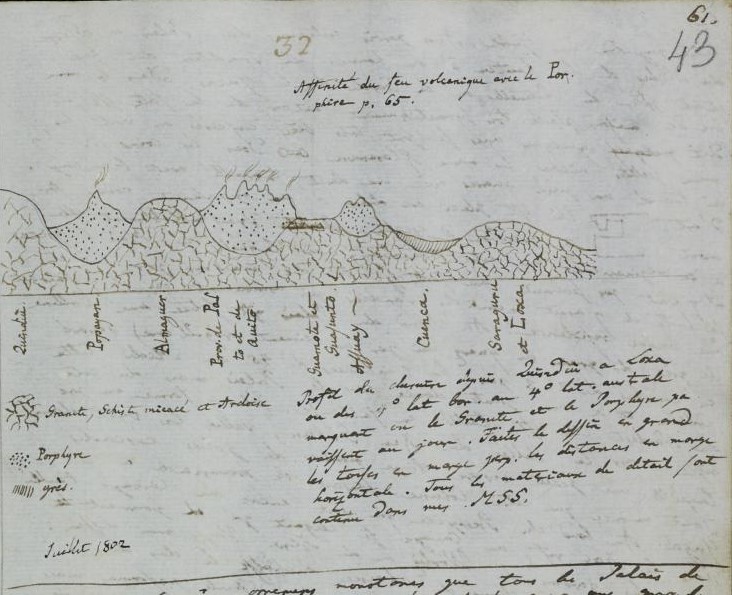 61.
32
43
Affinité du feu volcanique avec le Por-
phire p. 65.
Quindiu.
Popayan
Almaguer
Prov. de Pas
to et de
Quito.
Guamote et
Guasunto
Assuay
Cuenca.
Saraguru
et Loxa
Granite, Schiste micacé et Ardoise
Porphyre
grès.
Profil du depuis Quindiu a Loxa
ou des 5° lat. bor. au 4° lat. australe
marquant ou le Granite et le Porphyre pa
roissent au jour. Faites le dessin en grand
les toises en marge les distances en marge
horizontale. Tous les materiaux de detail sont
contenu dans mes MSS.
Juillet 1802
monotones que tous le Palais de